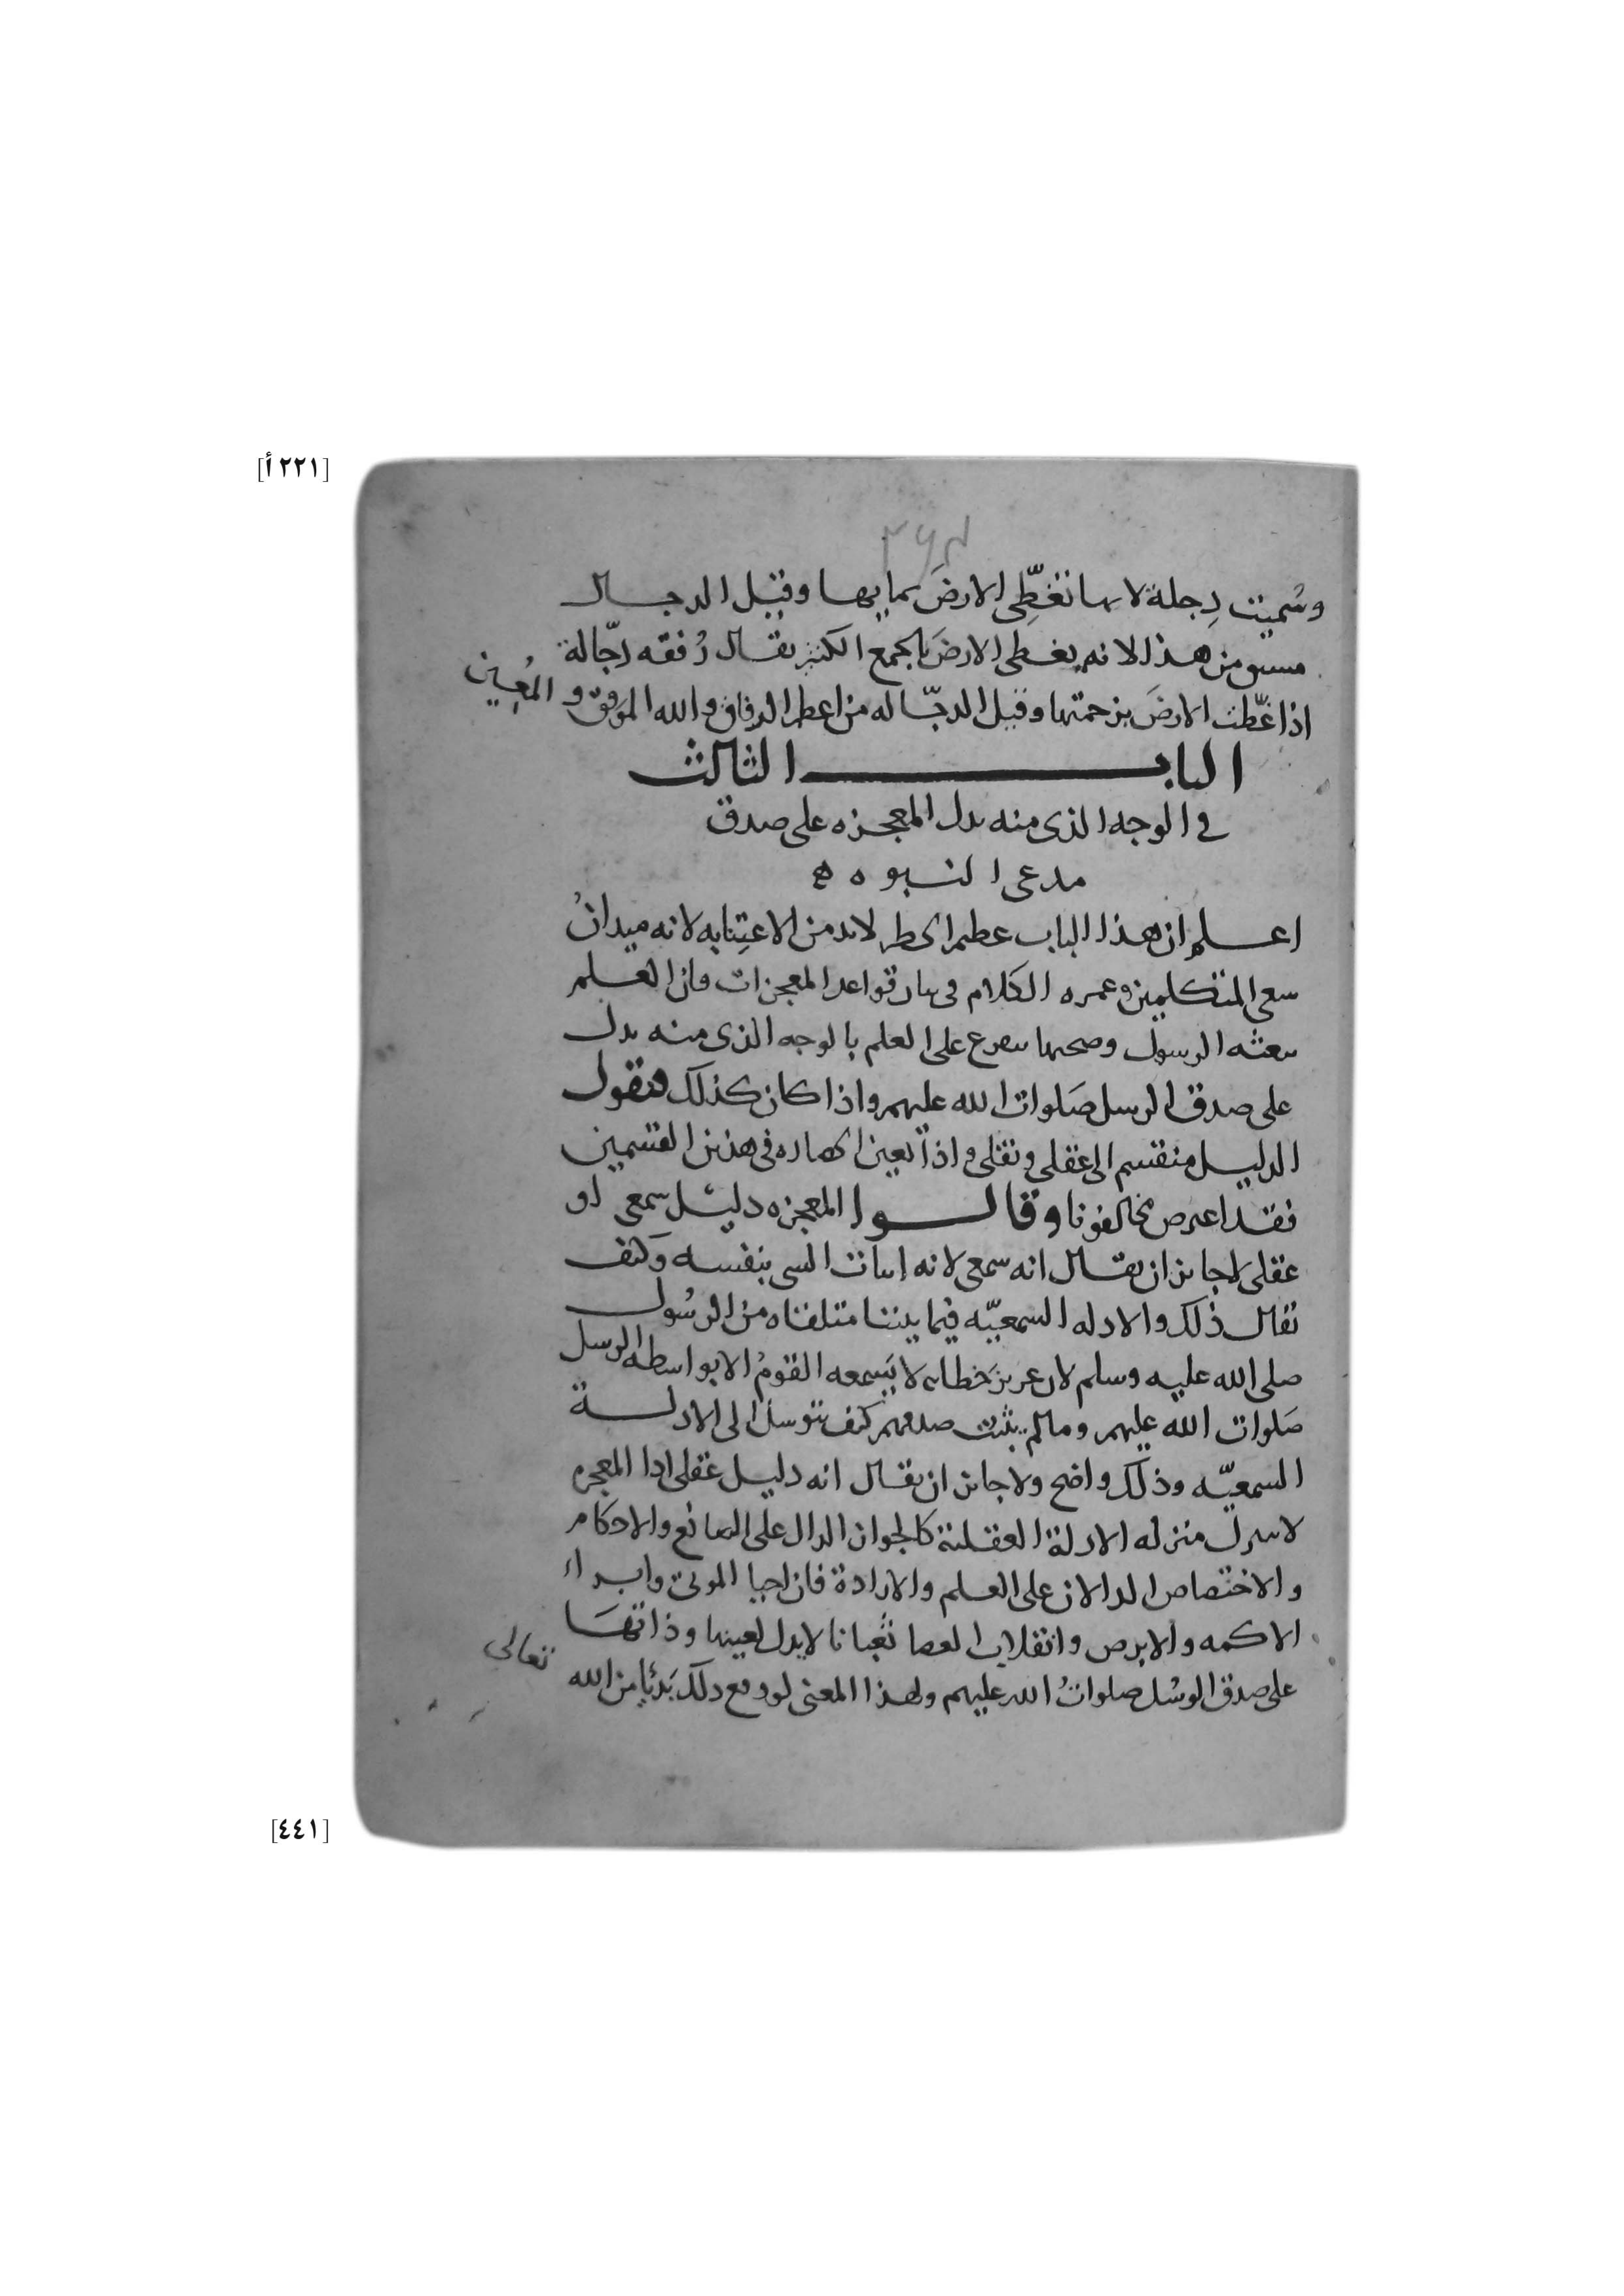 [٢٢١ أ]
وسُميت دِجلة لانها تغطِّى الارضَ بمايها وقيل الدجال
مشتق من هذا لانه يغطى الارضَ بالجمع الكثير يقال رُفقه دجّالة
اذا غَطّت الارضَ بزحمتها وقيل الدجّاله من اعظم الرفاق والله الموفق والمُعِين
الباب الثالث
فى الوجه الذى منه يدل المعجزه على صدق
مدعى النبوه
اعلم ان هذا الباب عظيم الخطر لابد من الاعتِنا به لانه ميدانُ
سعى المتكلمين وعمره الكلام فى بيان قواعد المعجزات فان العلم
ببعثه الرسول وصحتها يتفرع على العلم بالوجه الذى منه يدل
على صدق الرسل صَلوات الله عليهم واذا كان كذلك فنقول
الدليل منقسم الى عقلى ونقلى واذا تعين انحصاره فى هذين القسمين
فقد اعترض مخالفونا وقالوا المعجزه دليل سمعى او
عقلى لا جايز ان يقال انه سمعى لانه اثبات الشى بنفسه وكيف
يقال ذلك والادله السمعيّه فيما بيننا متلقاه من الرسُول
صلى الله عليه وسلم لان عزيز خطابه لا يَسمعه القومُ الا بواسطه الرسل
صَلوات الله عليهم وما لم يثبت صدقهم كيف يتوسل الى الادلة
السمعيّه وذلك واضح ولا جايز ان يقال انه دليل عقلى اذا المعجزه
لا ينزل منزله الادلة العقلية كالجواز الدال على الصانع والاحكام
والاختصاص الدالان على العلم والارادة فان احيا الموتى وابراء
الاكمه والابرص وانقلاب العصا ثعبانا لا يدل لعينها وذاتهَا
على صدق الرسُل صلواتُ الله عليهم ولهذا المعنى لو وقع ذلك بَدْئًا من الله تعالى
[٤٤١]